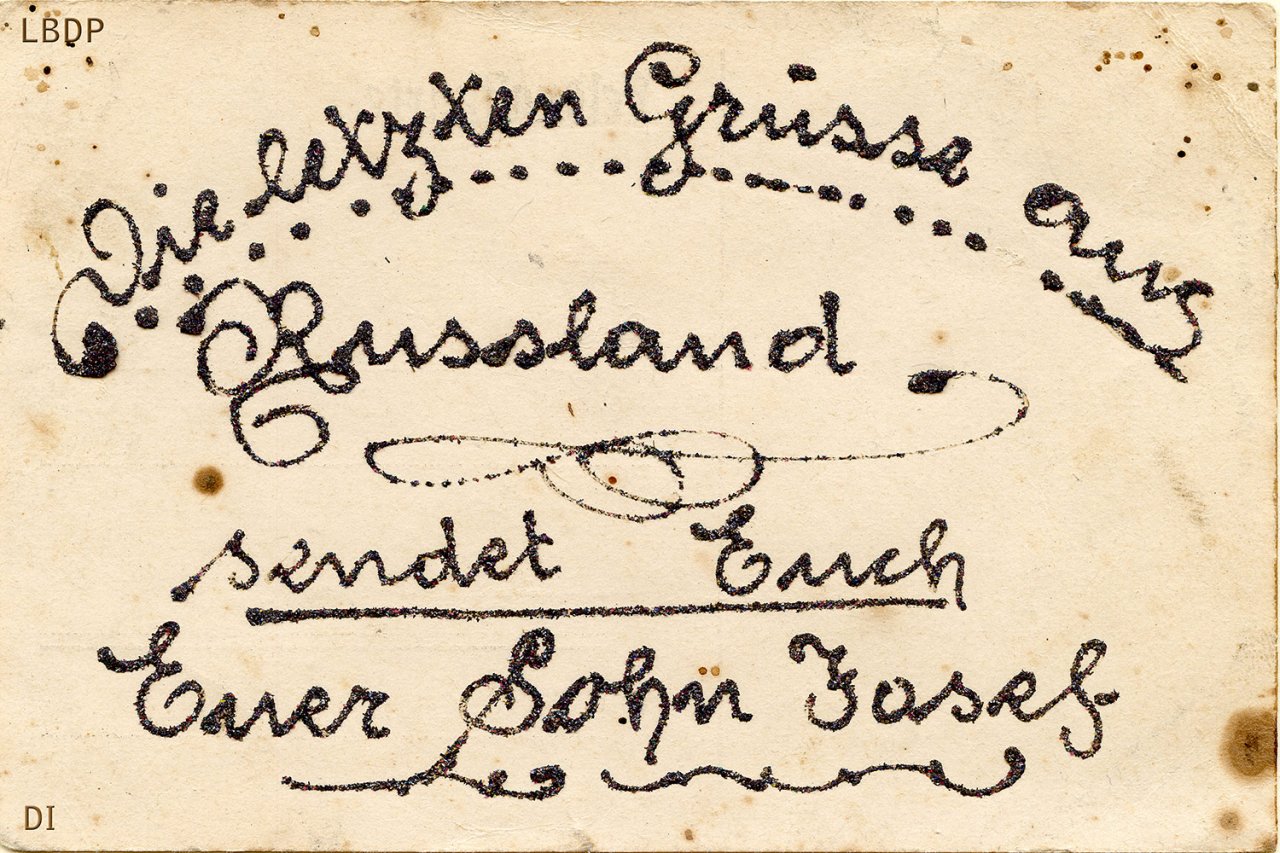 LBDP
Die letzten Grüsse aus
Russland
sendet Euch
Euer Sohn Josef
DI